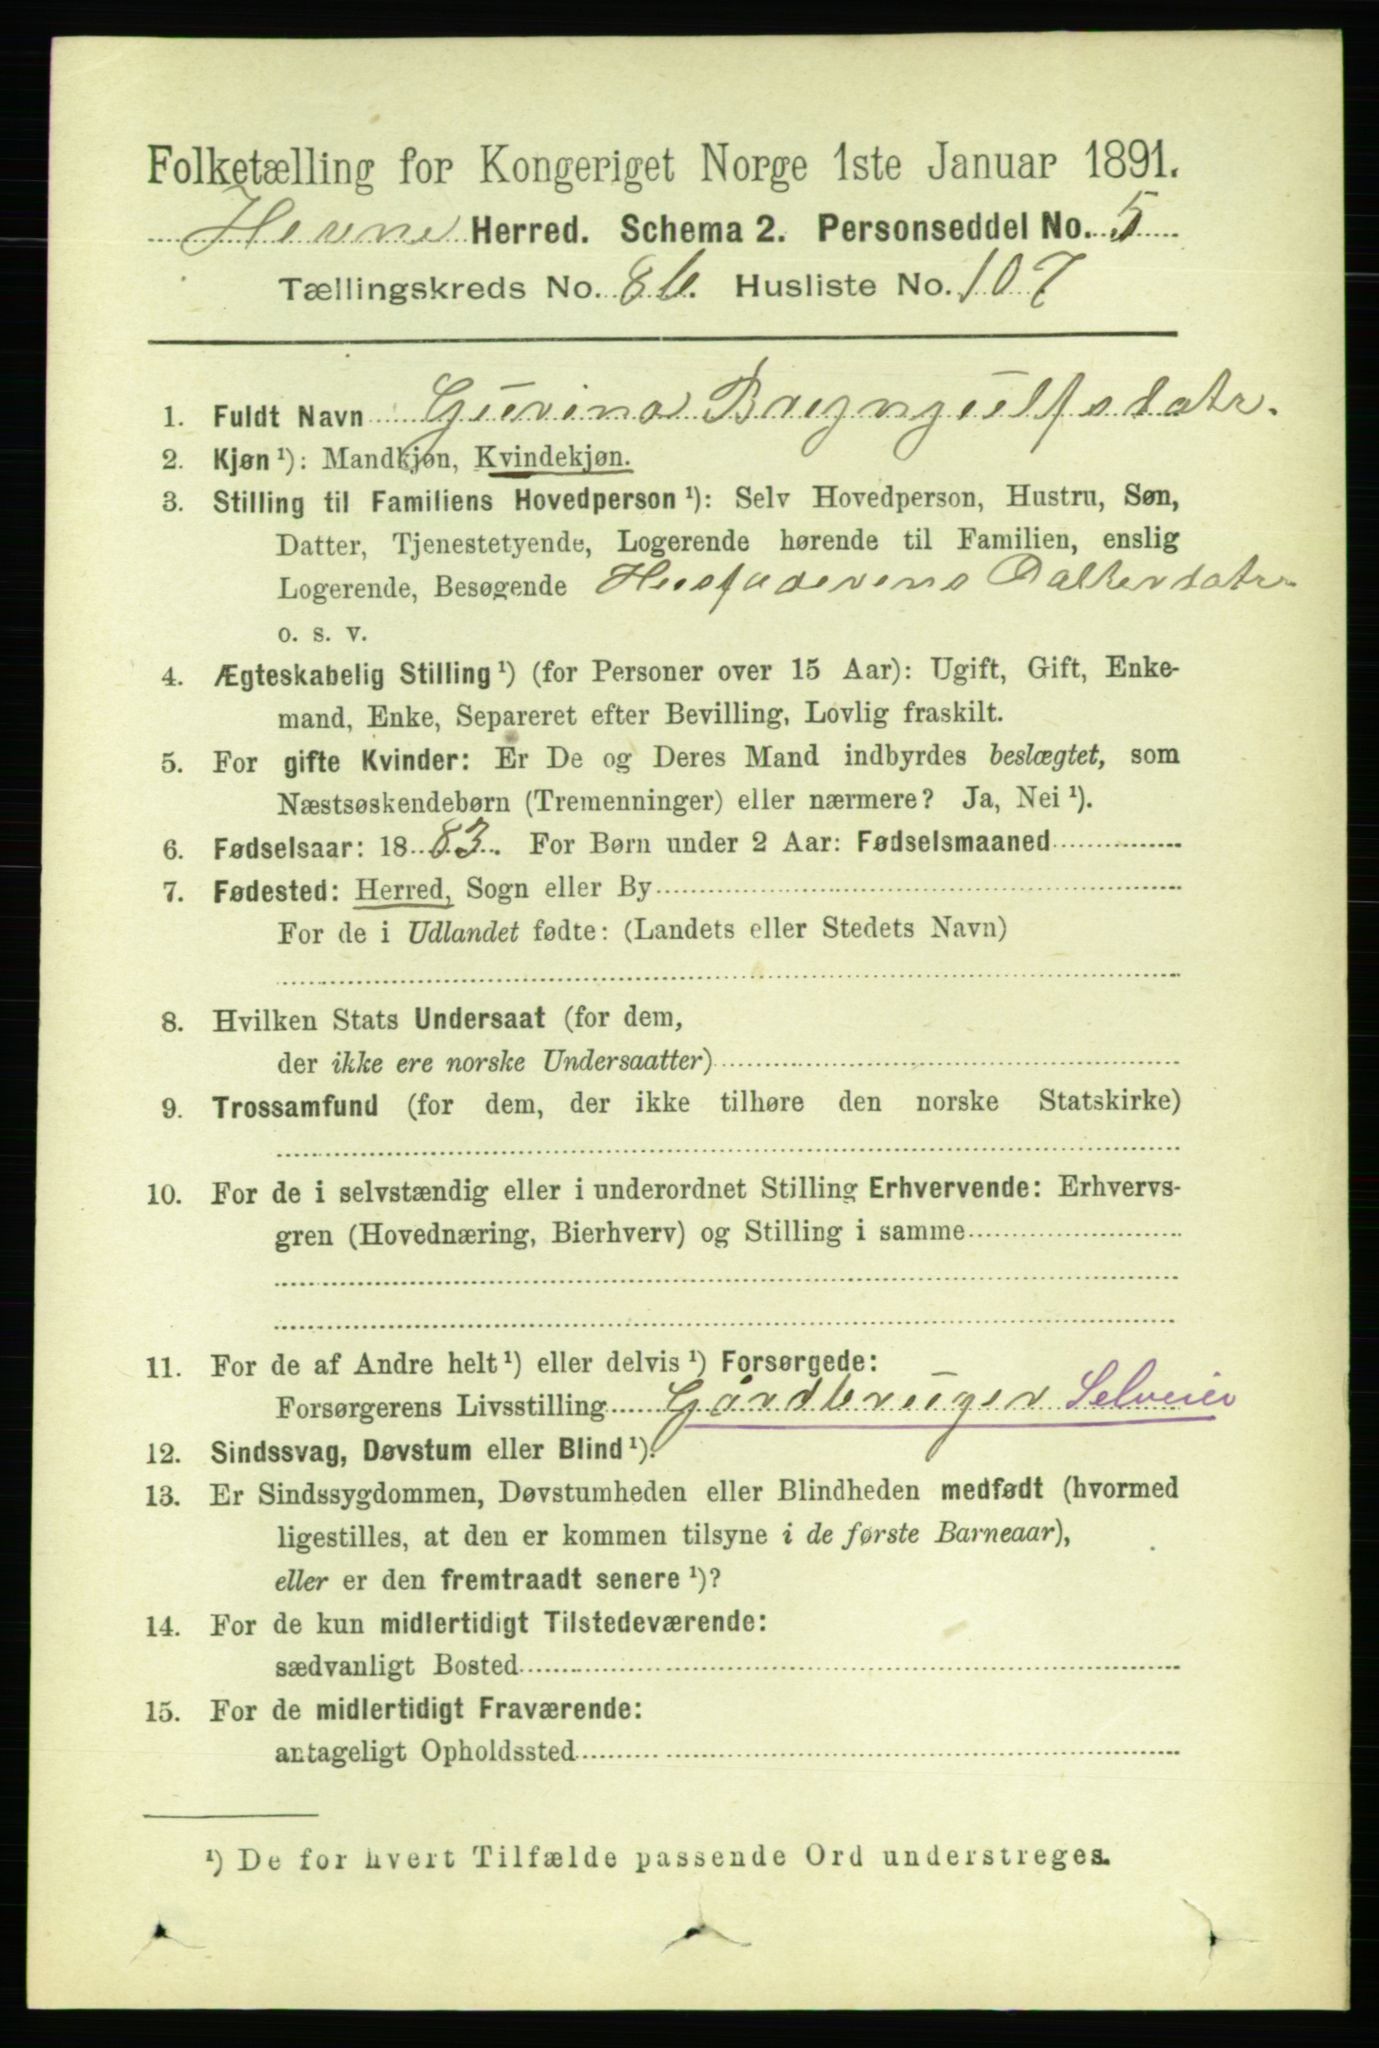 Folketælling for Kongeriget Norge 1ste Januar 1891.
Hevne Herred. Schema 2. Personseddel No. 5
Tællingskreds No. 8 b. Husliste No. 107
1. Fuldt Navn Gurina Brynjulfsdatr.
2. Kjøn ¹): Mandkjøn, Kvindekjøn.
3. Stilling til Familiens Hovedperson ¹): Selv Hovedperson, Hustru, Søn,
Datter, Tjenestetyende, Logerende hørende til Familien, enslig
Logerende, Besøgende Husfaderens Datterdatr
o. s. v.
4. Ægteskabelig Stilling ¹) (for Personer over 15 Aar): Ugift, Gift, Enke-
mand, Enke, Separeret efter Bevilling, Lovlig fraskilt.
5. For gifte Kvinder: Er De og Deres Mand indbyrdes beslægtet, som
Næstsøskendebørn (Tremenninger) eller nærmere? Ja, Nei ¹).
6. Fødselsaar: 1883. For Børn under 2 Aar: Fødselsmaaned
7. Fødested: Herred, Sogn eller By
For de i Udlandet fødte: (Landets eller Stedets Navn)
8. Hvilken Stats Undersaat (for dem,
der ikke ere norske Undersaatter)
9. Trossamfund (for dem, der ikke tilhøre den norske Statskirke)
10. For de i selvstændig eller i underordnet Stilling Erhvervende: Erhvervs-
gren (Hovednæring, Bierhverv) og Stilling i samme
11. For de af Andre helt ¹) eller delvis ¹) Forsørgede:
Forsørgerens Livsstilling Gårdbruger Selveier
12. Sindssvag, Døvstum eller Blind ¹).
13. Er Sindssygdommen, Døvstumheden eller Blindheden medfødt (hvormed
ligestilles, at den er kommen tilsyne i de første Barneaar),
eller er den fremtraadt senere ¹)?
14. For de kun midlertidigt Tilstedeværende:
sædvanligt Bosted
15. For de midlertidigt Fraværende:
antageligt Opholdssted
¹) De for hvert Tilfælde passende Ord understreges.